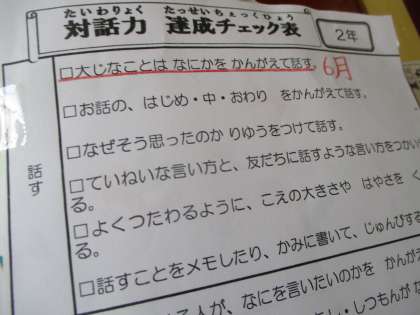 たいわりょく たっせいちぇっくひょう
対話力 達成チェック表
2年
話す
□大じなことは なにかを かんがえて話す。 6月
□お話の、はじめ・中・おわり をかんがえて話す。
□なぜそう思ったのか りゆうをつけて話す。
□ていねいな言い方と、友だちに話すような言い方をつかい
る。
□よくつたわるように、こえの大きさや はやさを く
る。
□話すことをメモしたり、かみに書いて、じゅんびする
る人が、なにを言いたいのかを かんがえ
し・しつもんが